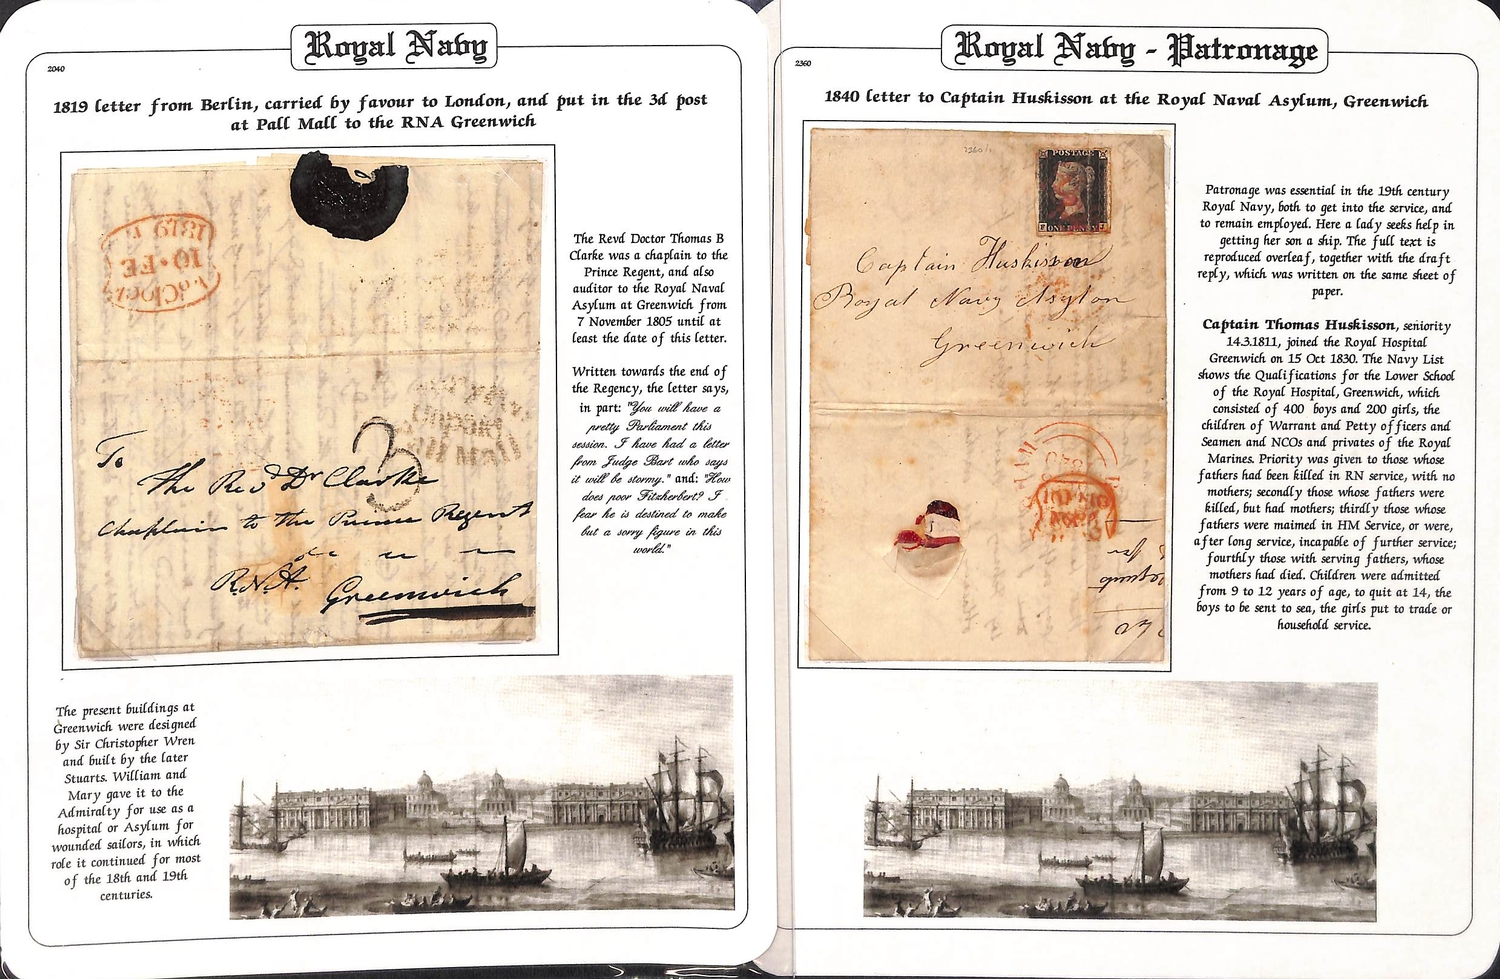 Royal Navy
2040
1819 letter from Berlin, carried by favour to London, and put in the 3d post
at Pall Mall to the RNA Greenwich
1819
10·FE
3
To
The Revd Dr Clarke
Chaplain to the Prince Regent
R.N.A.
Greenwich
The Revd Doctor Thomas B
Clarke was a chaplain to the
Prince Regent, and also
auditor to the Royal Naval
Asylum at Greenwich from
7 November 1805 until at
least the date of this letter.
Written towards the end of
the Regency, the letter says,
in part: "You will have a
pretty Parliament this
session. I have had a letter
from Judge Bart who says
it will be stormy." and: "How
does poor Fitzherbert? I
fear he is destined to make
but a sorry figure in this
world."
The present buildings at
Greenwich were designed
by Sir Christopher Wren
and built by the later
Stuarts. William and
Mary gave it to the
Admiralty for use as a
hospital or Asylum for
wounded sailors, in which
role it continued for most
of the 18th and 19th
centuries.
Royal Navy - Patronage
2360
1840 letter to Captain Huskisson at the Royal Naval Asylum, Greenwich
POSTAGE
ONE PENNY
Captain Huskisson
Royal Navy Asylum
Greenwich
Patronage was essential in the 19th century
Royal Navy, both to get into the service, and
to remain employed. Here a lady seeks help in
getting her son a ship. The full text is
reproduced overleaf, together with the draft
reply, which was written on the same sheet of
paper.
Captain Thomas Huskisson, seniority
14.3.1811, joined the Royal Hospital
Greenwich on 15 Oct 1830. The Navy List
shows the Qualifications for the Lower School
of the Royal Hospital, Greenwich, which
consisted of 400 boys and 200 girls, the
children of Warrant and Petty officers and
Seamen and NCOs and privates of the Royal
Marines. Priority was given to those whose
fathers had been killed in RN service, with no
mothers; secondly those whose fathers were
killed, but had mothers; thirdly those whose
fathers were maimed in HM Service, or were,
after long service, incapable of further service;
fourthly those with serving fathers, whose
mothers had died. Children were admitted
from 9 to 12 years of age, to quit at 14, the
boys to be sent to sea, the girls put to trade or
household service.